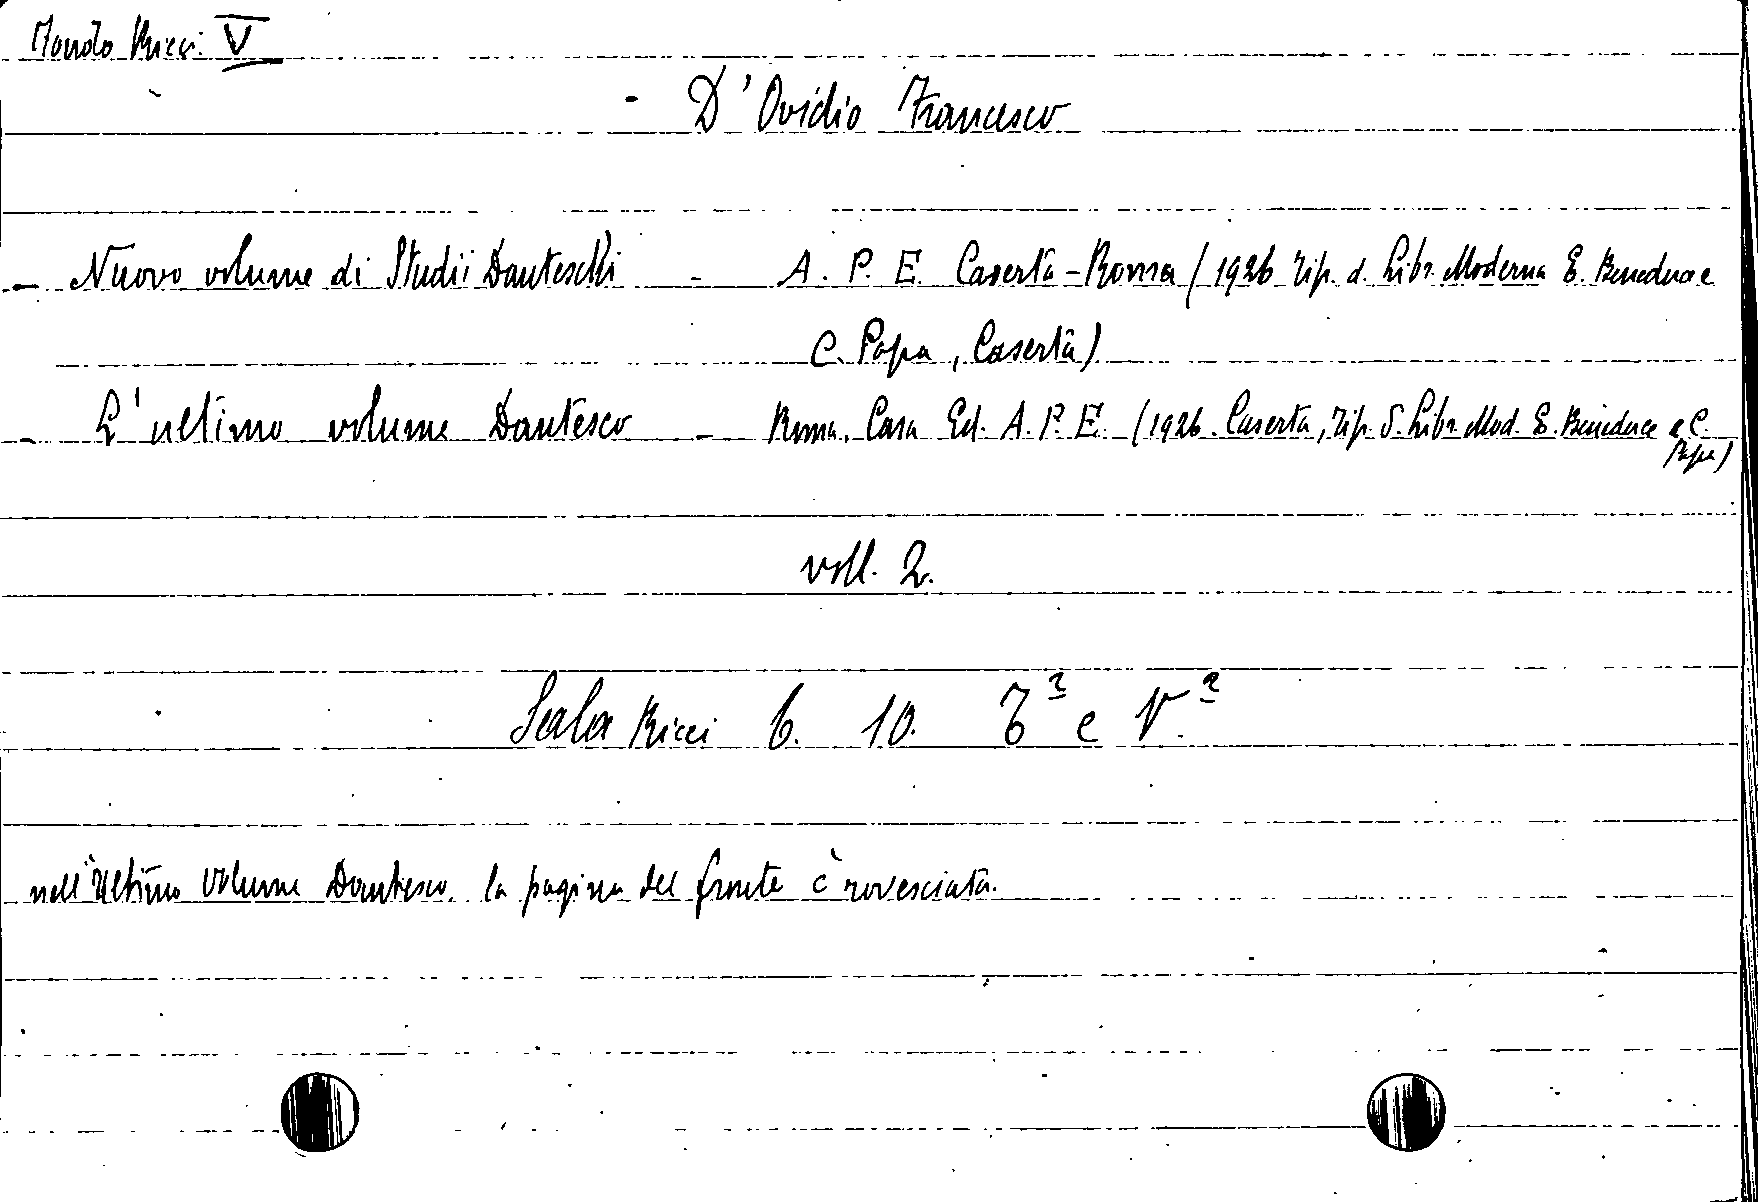 Fondo Ricci V
- D'Ovidio Francesco
- Nuovo volume di Studii Danteschi - A. P. E. Caserta-Roma (1926 Tip. d. Libr. Moderna E. Beneduce e
C. Papa, Caserta)
- L'ultimo volume Dantesco - Roma. Casa Ed. A. P. E. (1926. Caserta, Tip. d. Libr. Mod. E. Beneduce e C.
Papa)
voll. 2.
Sala Ricci 6. 10. e V.²
nell'Ultimo volume Dantesco. la pagina del fronte è rovesciata.